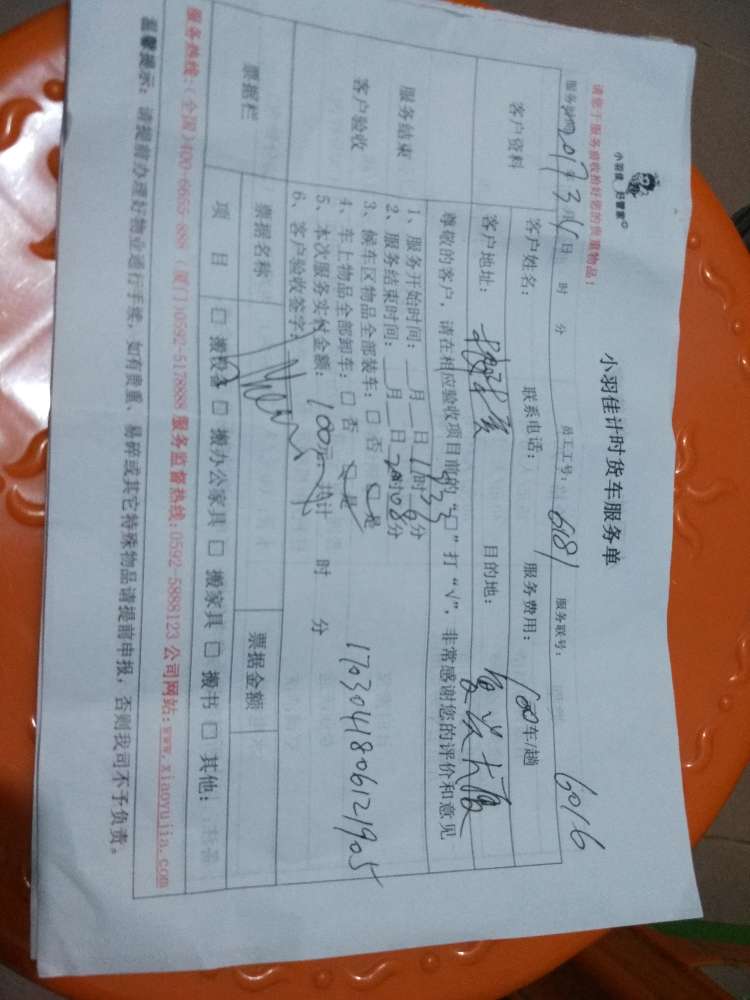 小羽佳 好管家
请您于服务前收拾好您的贵重物品！
小羽佳计时货车服务单
服务时间 2017年3月4日 时 分 员工工号： 6181 服务联号： 6016
客户资料
客户姓名： 联系电话： 服务费用： 100车/趟
客户地址： 目的地： 大厦
尊敬的客户，请在相应验收项目前的“□”打“√”，非常感谢您的评价和意见
服务结束
客户验收
1、服务开始时间： 月 日 时 分
2、服务结束时间： 月 日 时08分
3、候车区物品全部装车：□ 否 □ 是
4、车上物品全部卸车：□ 否 □ 是
5、本次服务实付金额： 100元，共计 时 分
6、客户验收签字：
1703041806121905
票据栏
票据名称 票据金额
项 目 □ 搬设备 □ 搬办公家具 □ 搬家具 □ 搬书 □ 其他：
服务热线：(全国)400-6655-888 (厦门)0592-5178888 服务监督热线：0592-5888123 公司网站：www.xiaoyujia.com
温馨提示：请提前办理好物业通行手续，如有贵重、易碎或其它特殊物品请提前申报，否则我司不予负责。